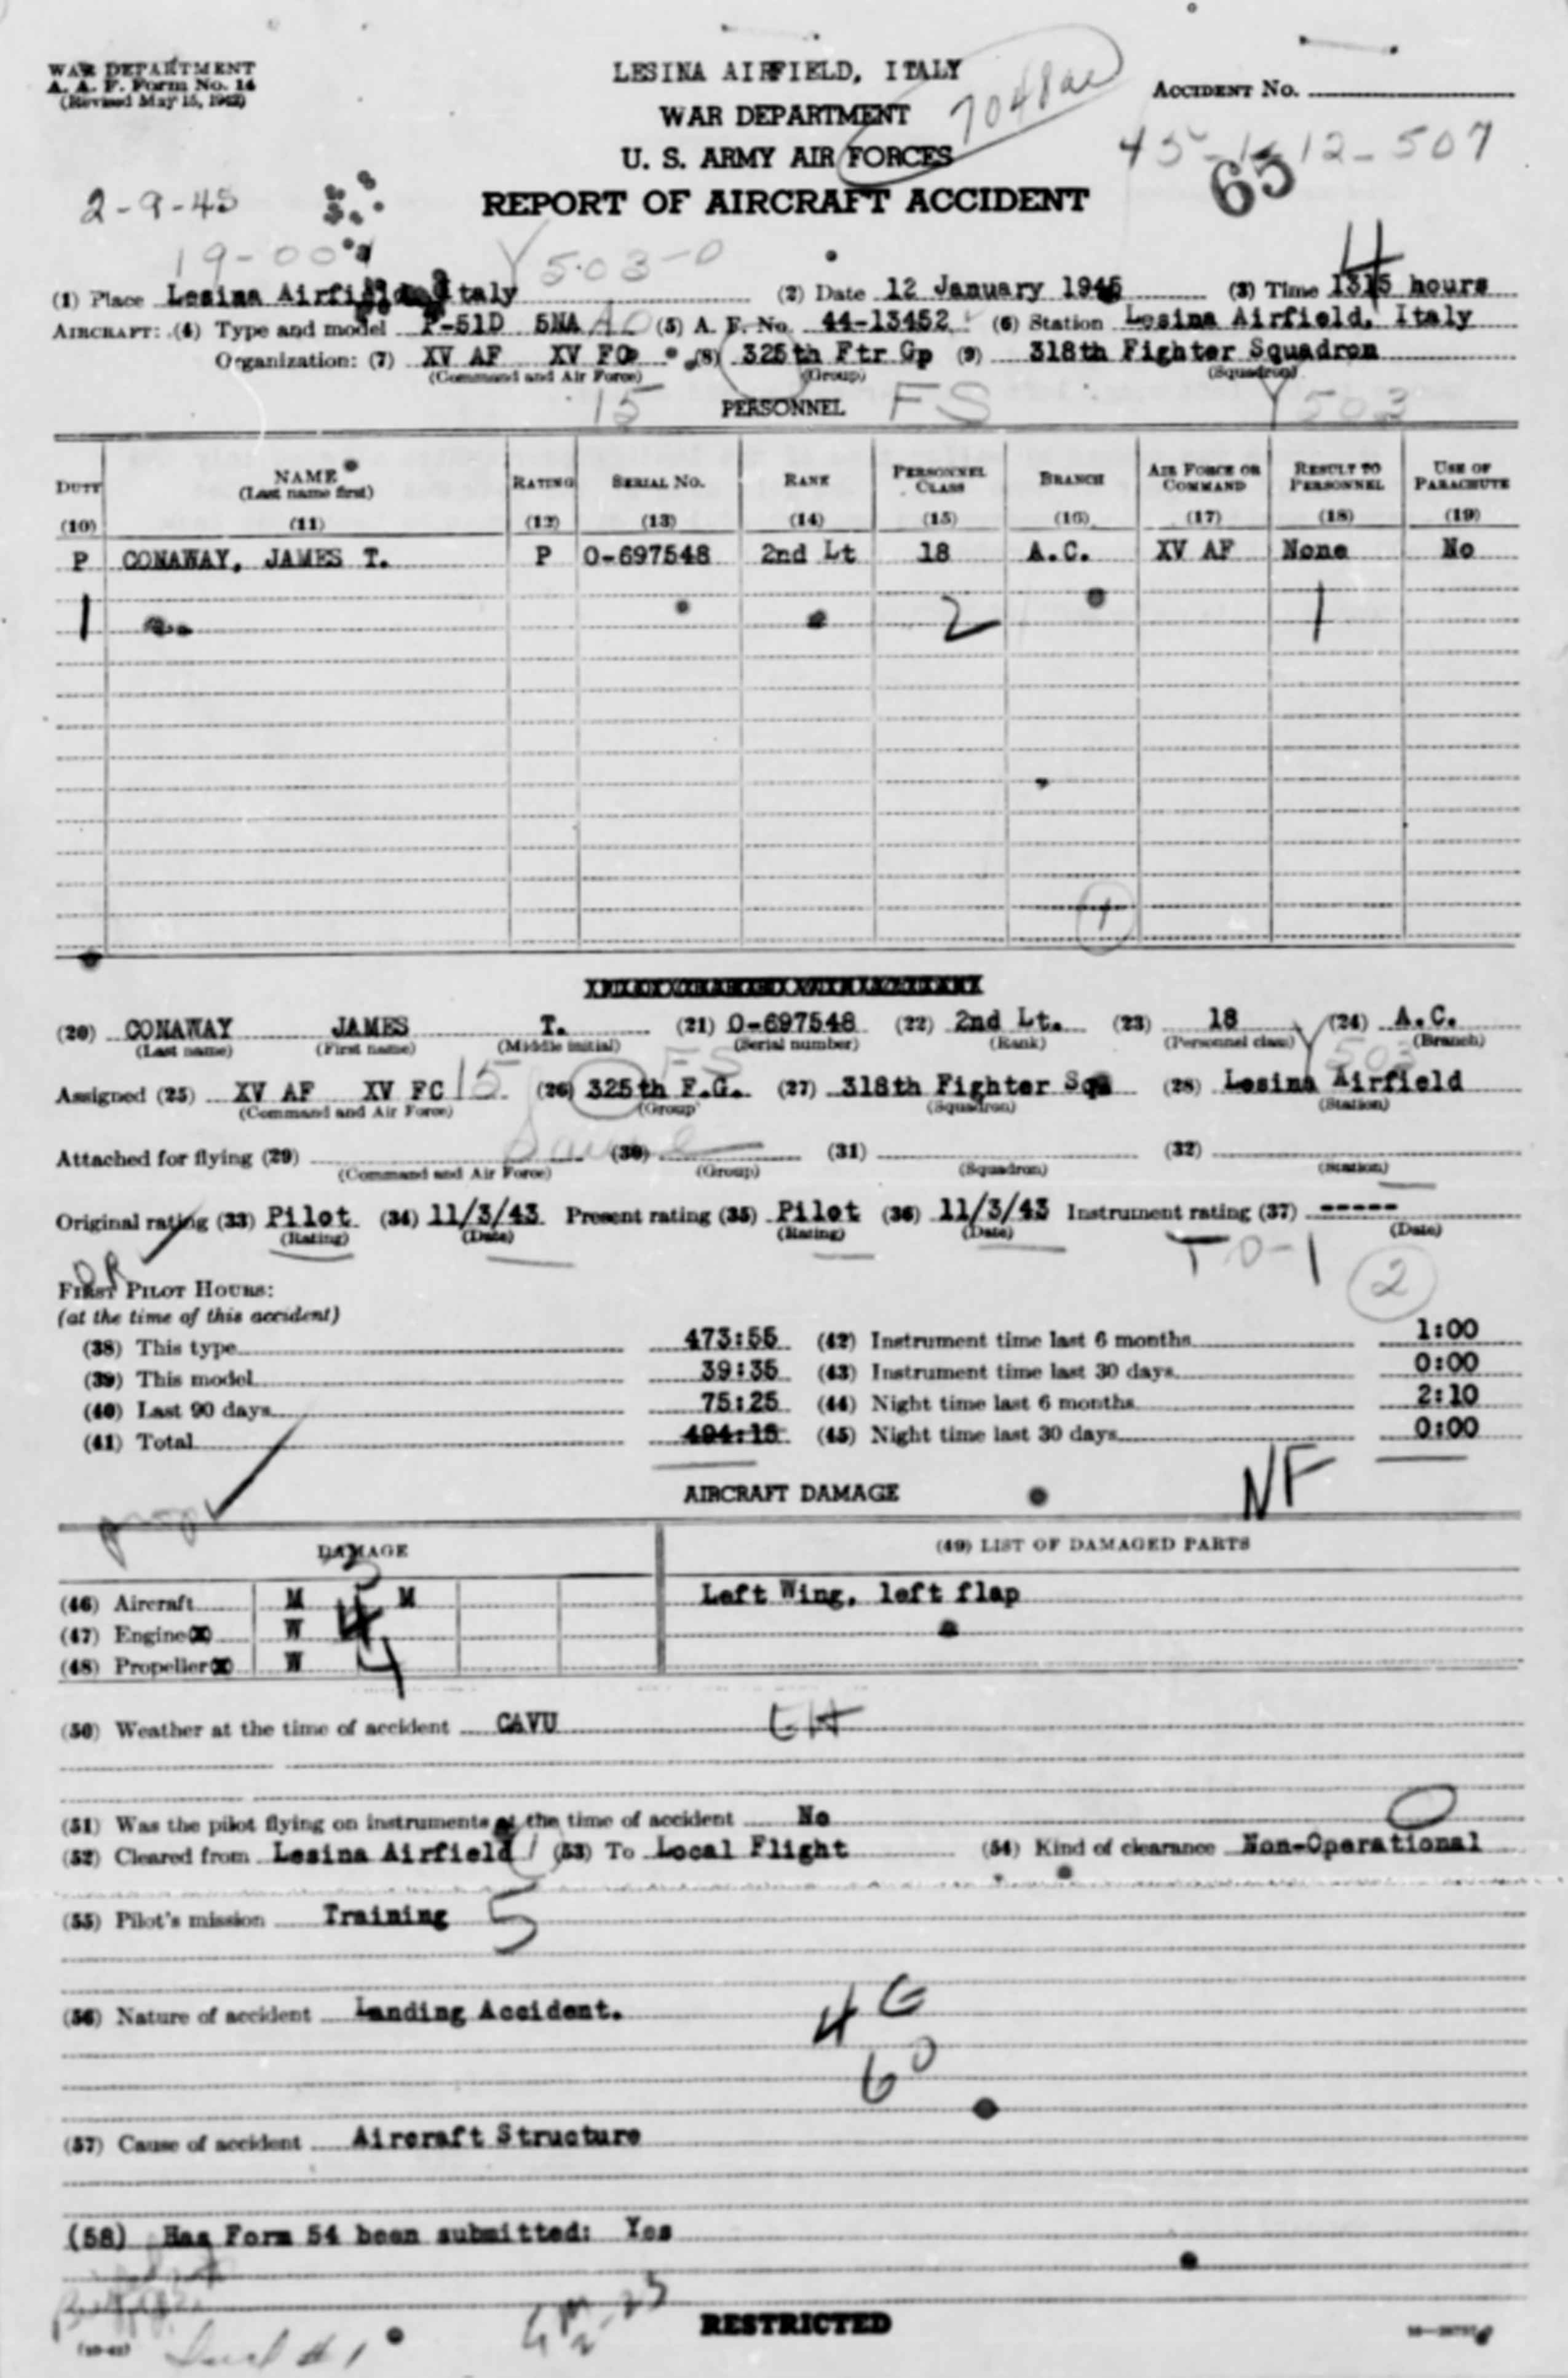 WAR DEPARTMENT
A. A. F. Form No. 14
(Revised May 15, 1942)
LESINA AIRFIELD, ITALY
WAR DEPARTMENT
U. S. ARMY AIR FORCES
REPORT OF AIRCRAFT ACCIDENT
ACCIDENT No.
45-1-12-507
65
2-9-45
19-00
Y 503-0
4
(1) Place Lesina Airfield, Italy (2) Date 12 January 1945 (3) Time 1315 hours
AIRCRAFT: (4) Type and model P-51D 5NA (5) A. F. No. 44-13452 (6) Station Lesina Airfield, Italy
Organization: (7) XV AF XV FC (8) 325th Ftr Gp (9) 318th Fighter Squadron
(Command and Air Force) (Group) (Squadron)
15 PERSONNEL FS Y 503
DUTY NAME (Last name first) RATING SERIAL No. RANK PERSONNEL CLASS BRANCH AIR FORCE OR COMMAND RESULT TO PERSONNEL USE OF PARACHUTE
(10) (11) (12) (13) (14) (15) (16) (17) (18) (19)
P CONAWAY, JAMES T. P O-697548 2nd Lt 18 A.C. XV AF None No
1 2 1
1
(20) CONAWAY JAMES T. (21) O-697548 (22) 2nd Lt. (23) 18 (24) A.C.
(Last name) (First name) (Middle initial) (Serial number) (Rank) (Personnel class) (Branch)
FS Y 503
Assigned (25) XV AF XV FC 15 (26) 325th F.G. (27) 318th Fighter Sqd (28) Lesina Airfield
(Command and Air Force) (Group) (Squadron) (Station)
Same
Attached for flying (29) (30) (31) (32)
(Command and Air Force) (Group) (Squadron) (Station)
Original rating (33) Pilot (34) 11/3/43 Present rating (35) Pilot (36) 11/3/43 Instrument rating (37) -----
(Rating) (Date) (Rating) (Date) (Date)
T 0-1
2
FIRST PILOT HOURS:
(at the time of this accident)
(38) This type 473:55 (42) Instrument time last 6 months 1:00
(39) This model 39:35 (43) Instrument time last 30 days 0:00
(40) Last 90 days 75:25 (44) Night time last 6 months 2:10
(41) Total 494:15 (45) Night time last 30 days 0:00
NF
AIRCRAFT DAMAGE
DAMAGE (49) LIST OF DAMAGED PARTS
(46) Aircraft M 3 M Left Wing, left flap
(47) Engine(X) W 4
(48) Propeller(X) W 4
(50) Weather at the time of accident CAVU
(51) Was the pilot flying on instruments at the time of accident No 0
(52) Cleared from Lesina Airfield (53) To Local Flight (54) Kind of clearance Non-Operational
(55) Pilot's mission Training 5
(56) Nature of accident Landing Accident.
4 G
60
(57) Cause of accident Aircraft Structure
(58) Has Form 54 been submitted: Yes
RESTRICTED